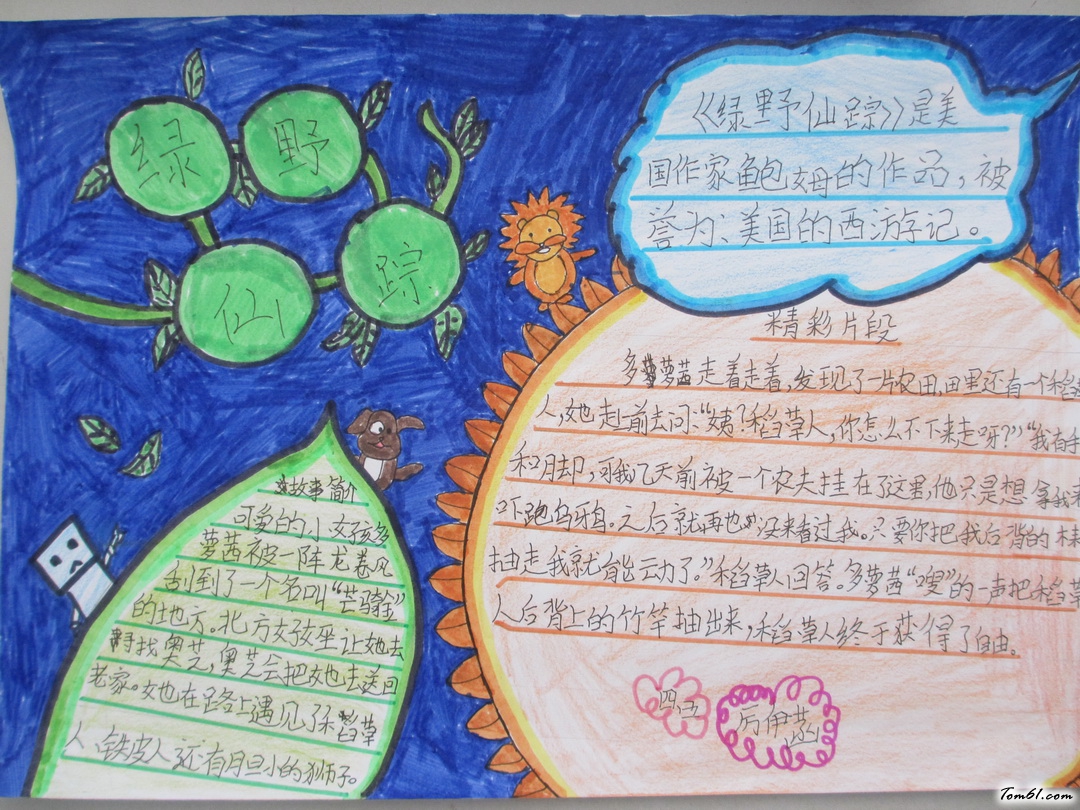 绿野仙踪
《绿野仙踪》是美
国作家鲍姆的作品，被
誉为：美国的西游记。
精彩片段
多萝茜走着走着，发现了一片农田，田里还有一个稻草
人，她走上前去问：“咦？稻草人，你怎么不下来走呀？”“我有手
和脚，可我几天前被一个农夫挂在了这里，他只是想拿我来
吓跑乌鸦。之后就再也没来看过我。只要你把我后背的
抽走我就能动了。”稻草人回答。多萝茜“嗖”的一声把稻草
人后背上的竹竿抽出来，稻草人终于获得了自由。
四、五
故事简介
可爱的小女孩多
萝茜被一阵龙卷风
刮到了一个名叫“芒
的地方。北方女巫让她去
寻找奥芝，奥芝会把她去送回
老家。她在路上遇见了稻草
人、铁皮人还有胆小的狮子。
Tom61.com